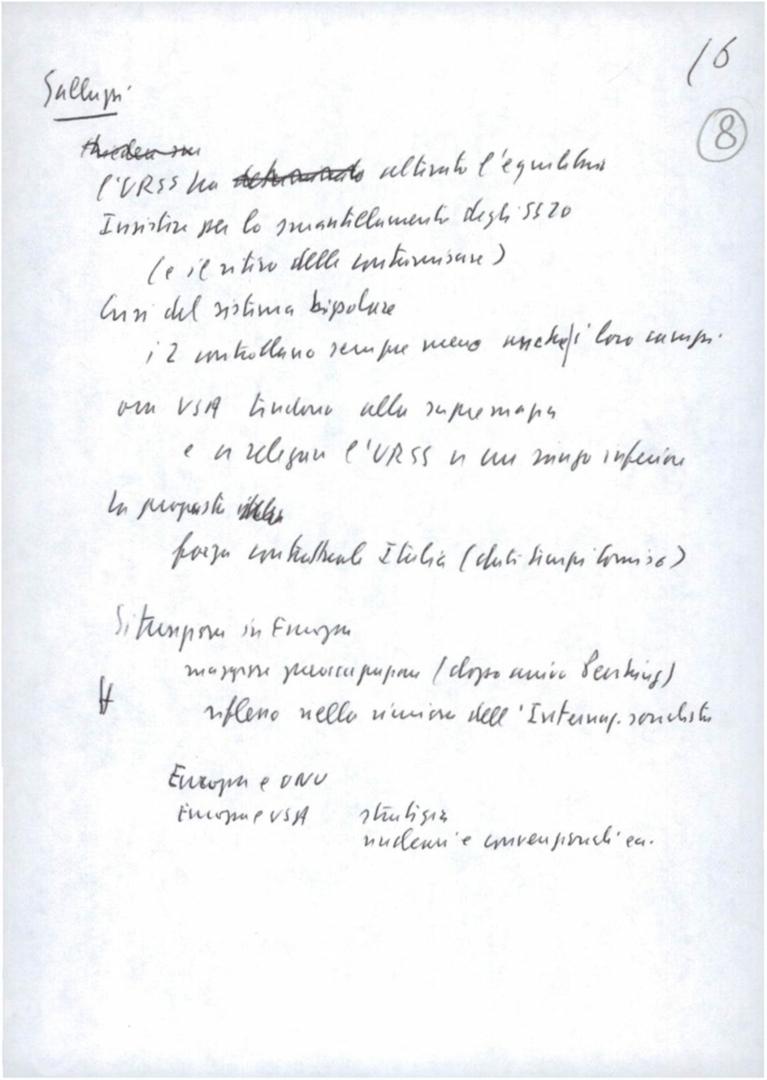 16
8
Galluppi
l'URSS ha alterato l'equilibrio
Insistere per lo smantellamento degli SS20
(e il ritiro delle contromisure)
Crisi del sistema bipolare
i 2 controllano sempre meno anche i loro campi.
ora USA tendono alla supremazia
e a relegare l'URSS a un rango inferiore
La proposta
forza contrattuale Italia (dati tempi Comiso)
Situazione in Europa
maggiore preoccupazione (dopo arrivo Pershing)
riflesso nella riunione dell'Internaz. socialista
Europa e ONU
Europa e USA strategia
nucleari e convenzionali ecc.